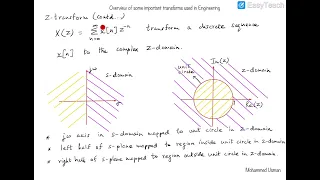 Overview of some important transforms used in Engineering
EasyTeach
Z-transform (contd...)
X(z) = ∑ x[n] z⁻ⁿ transform a discrete sequence
n=∞
x[n] to the complex z-domain.
jω
s-domain
σ
unit circle
Im(z)
z-domain
Re(z)
* jω axis in s-domain mapped to unit circle in z-domain
* left half of s-plane mapped to region inside unit circle in z-domain
* right half of s-plane mapped to region outside unit circle in z-domain.
Mohammed Usman